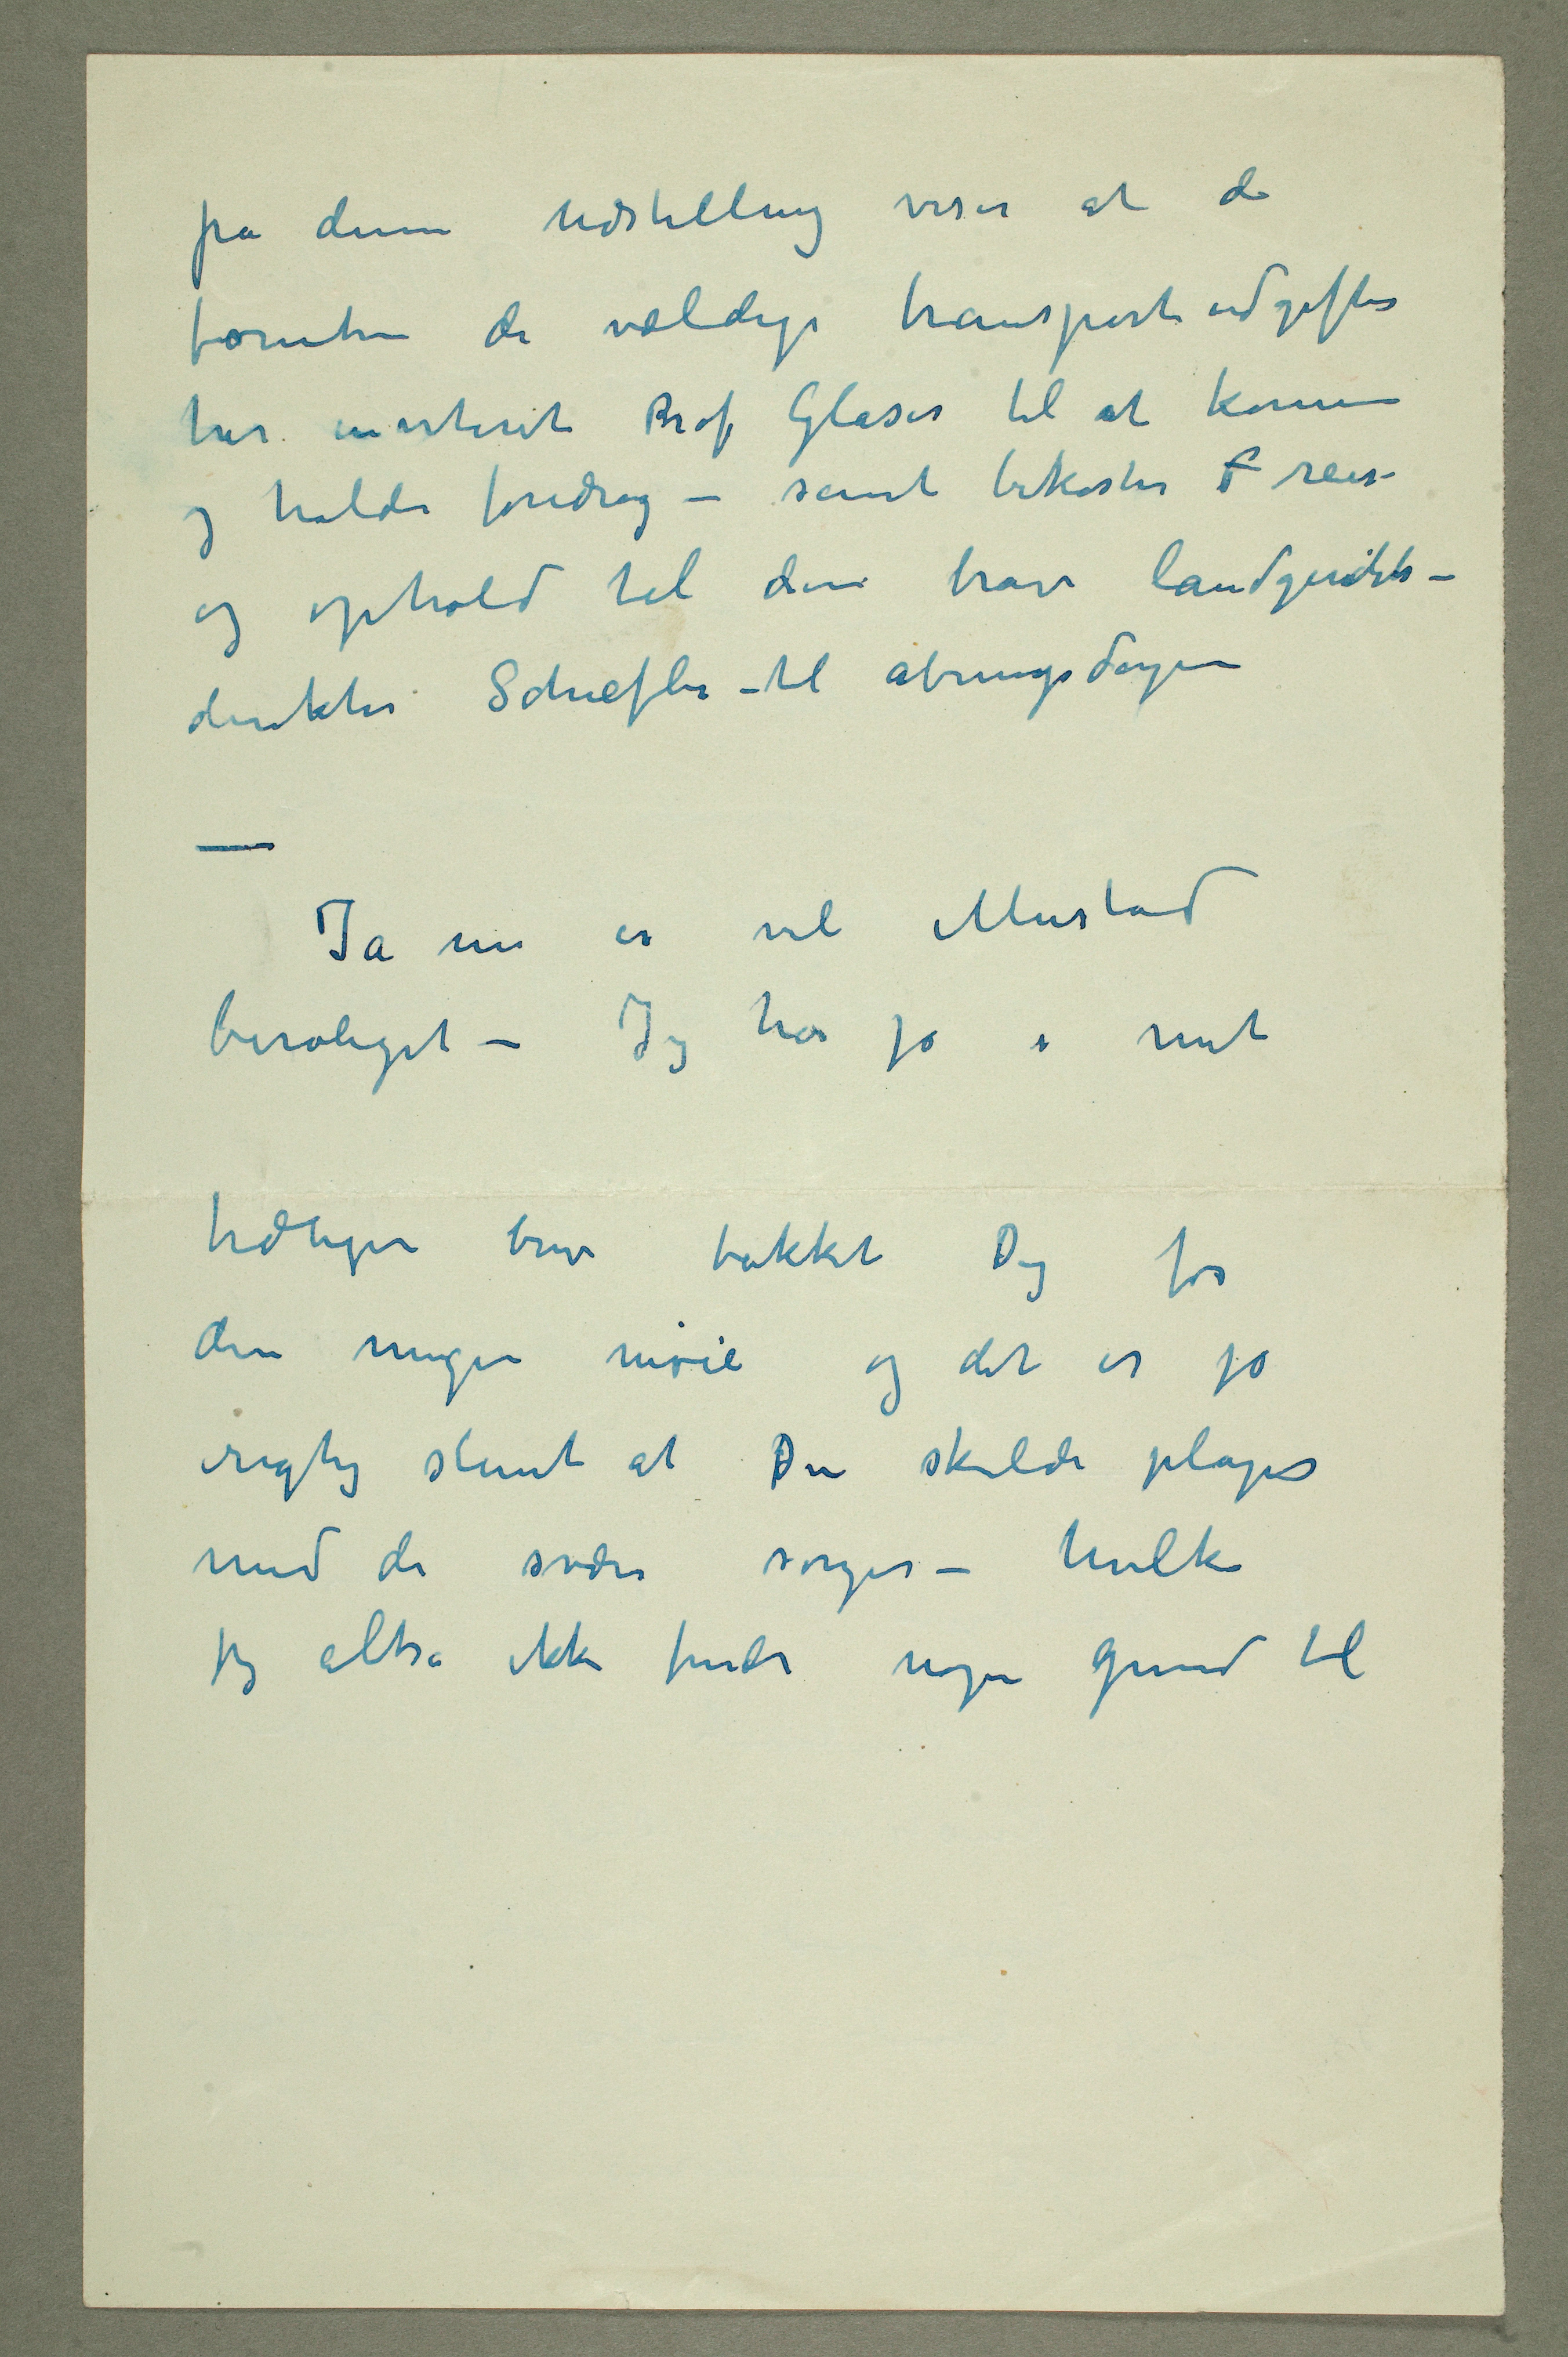 på denne Udstilling viser at de
foruten de vældige transportudgifter
har inviteret Prof Glaser til at komme
og holde foredrag – samt bekoster reise
og ophold til den brave landgerichts-
direktør Schiefler – til åbningsdagen
—
Ja nu er vel Mustad
beroliget – Jeg har jo i mit
tidligere brev takket Dig for
din megen møie og det er jo
rigtig slemt at Du skulde plages
med de svære sorger – hvilke
jeg altså ikke finder nogen grund til